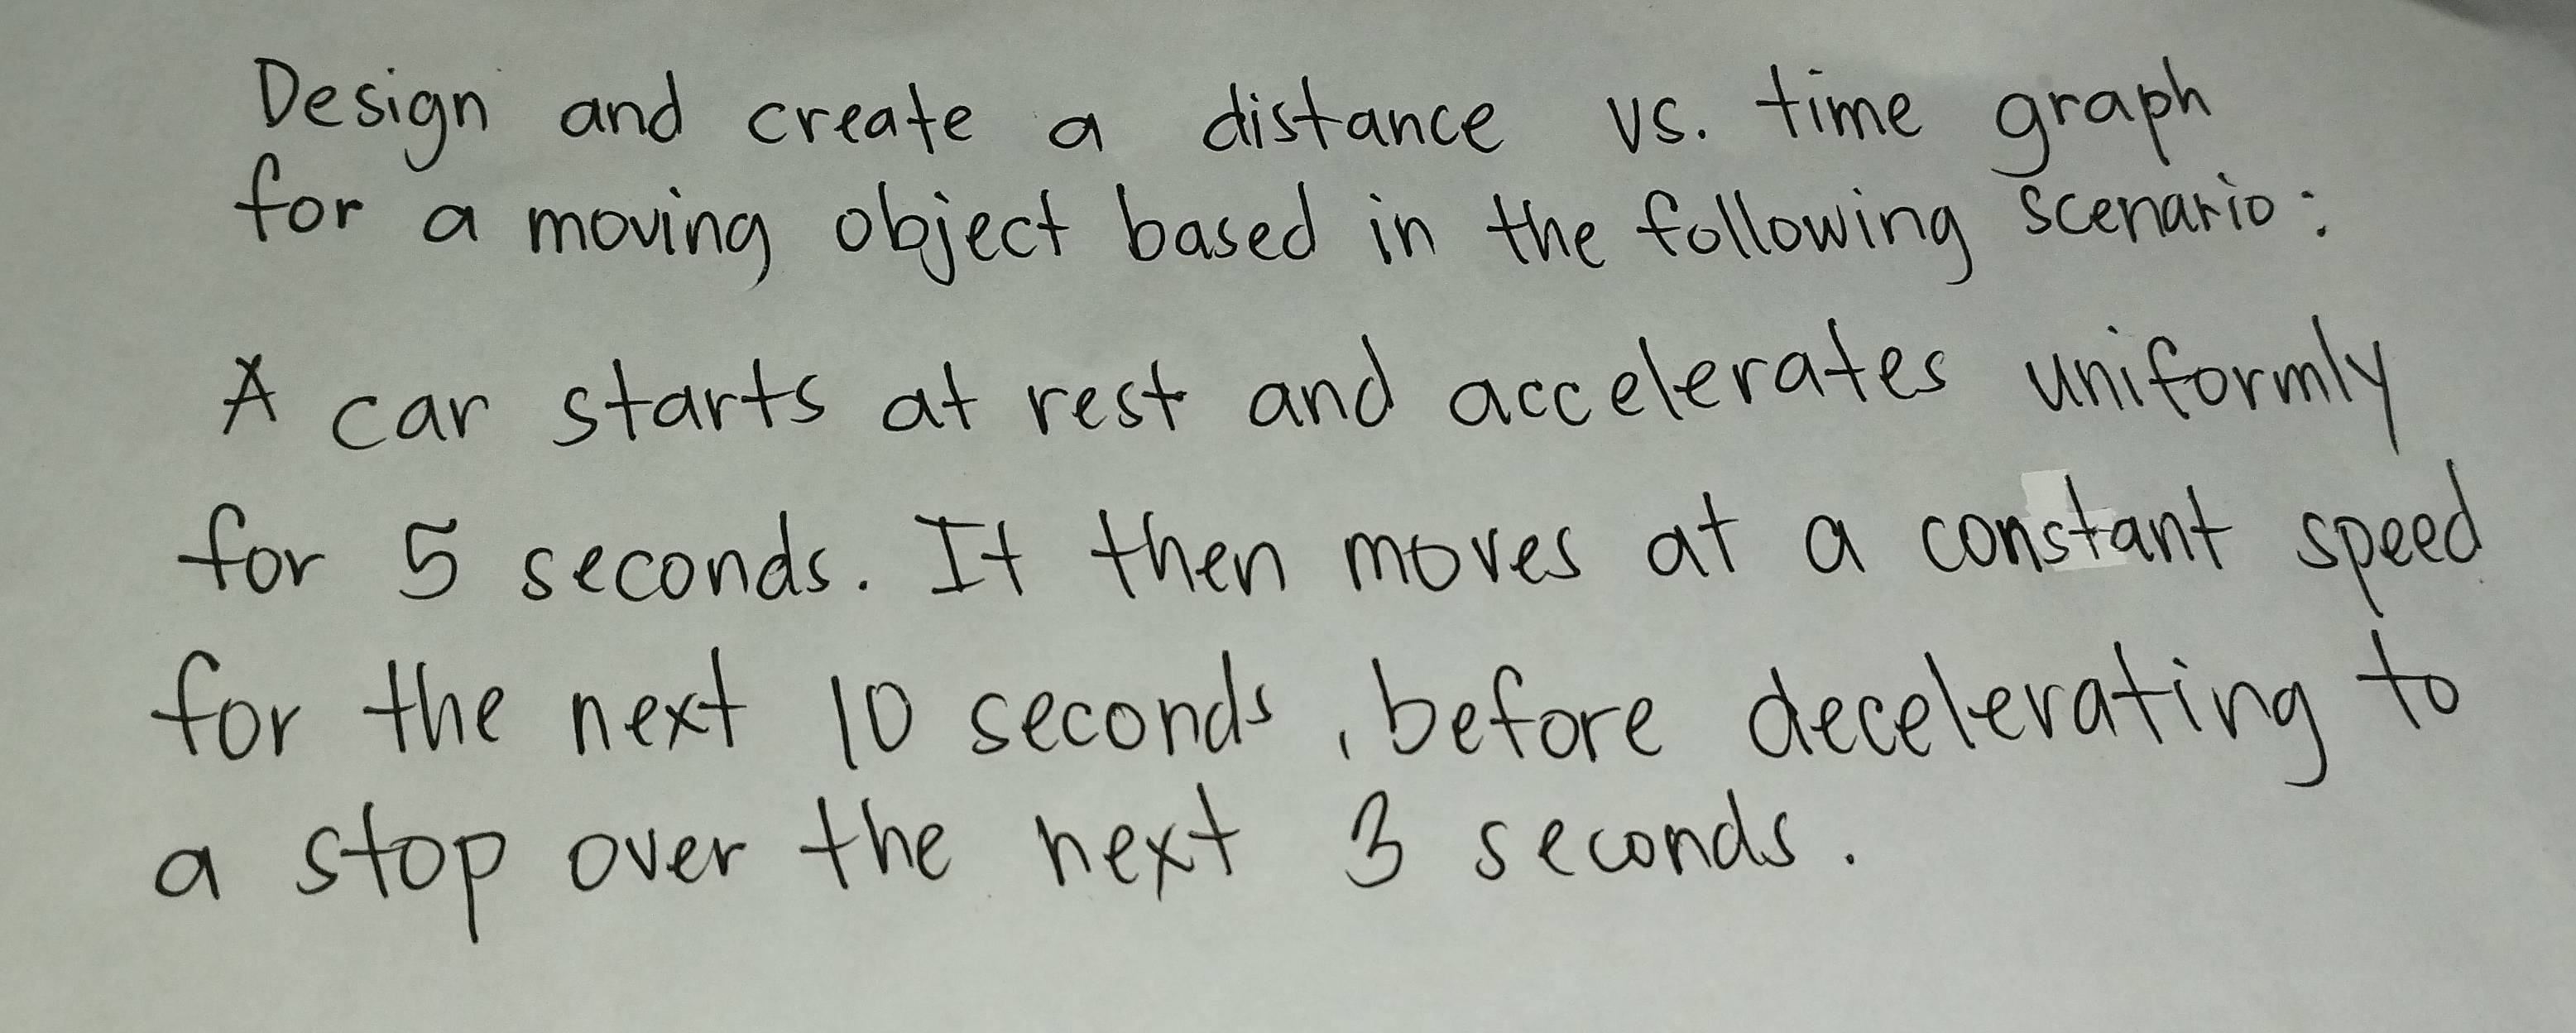 Design and create a distance vs. time graph
for a moving object based in the following scenario:
A car starts at rest and accelerates uniformly
for 5 seconds. It then moves at a constant speed
for the next 10 seconds, before decelerating to
a stop over the next 3 seconds.